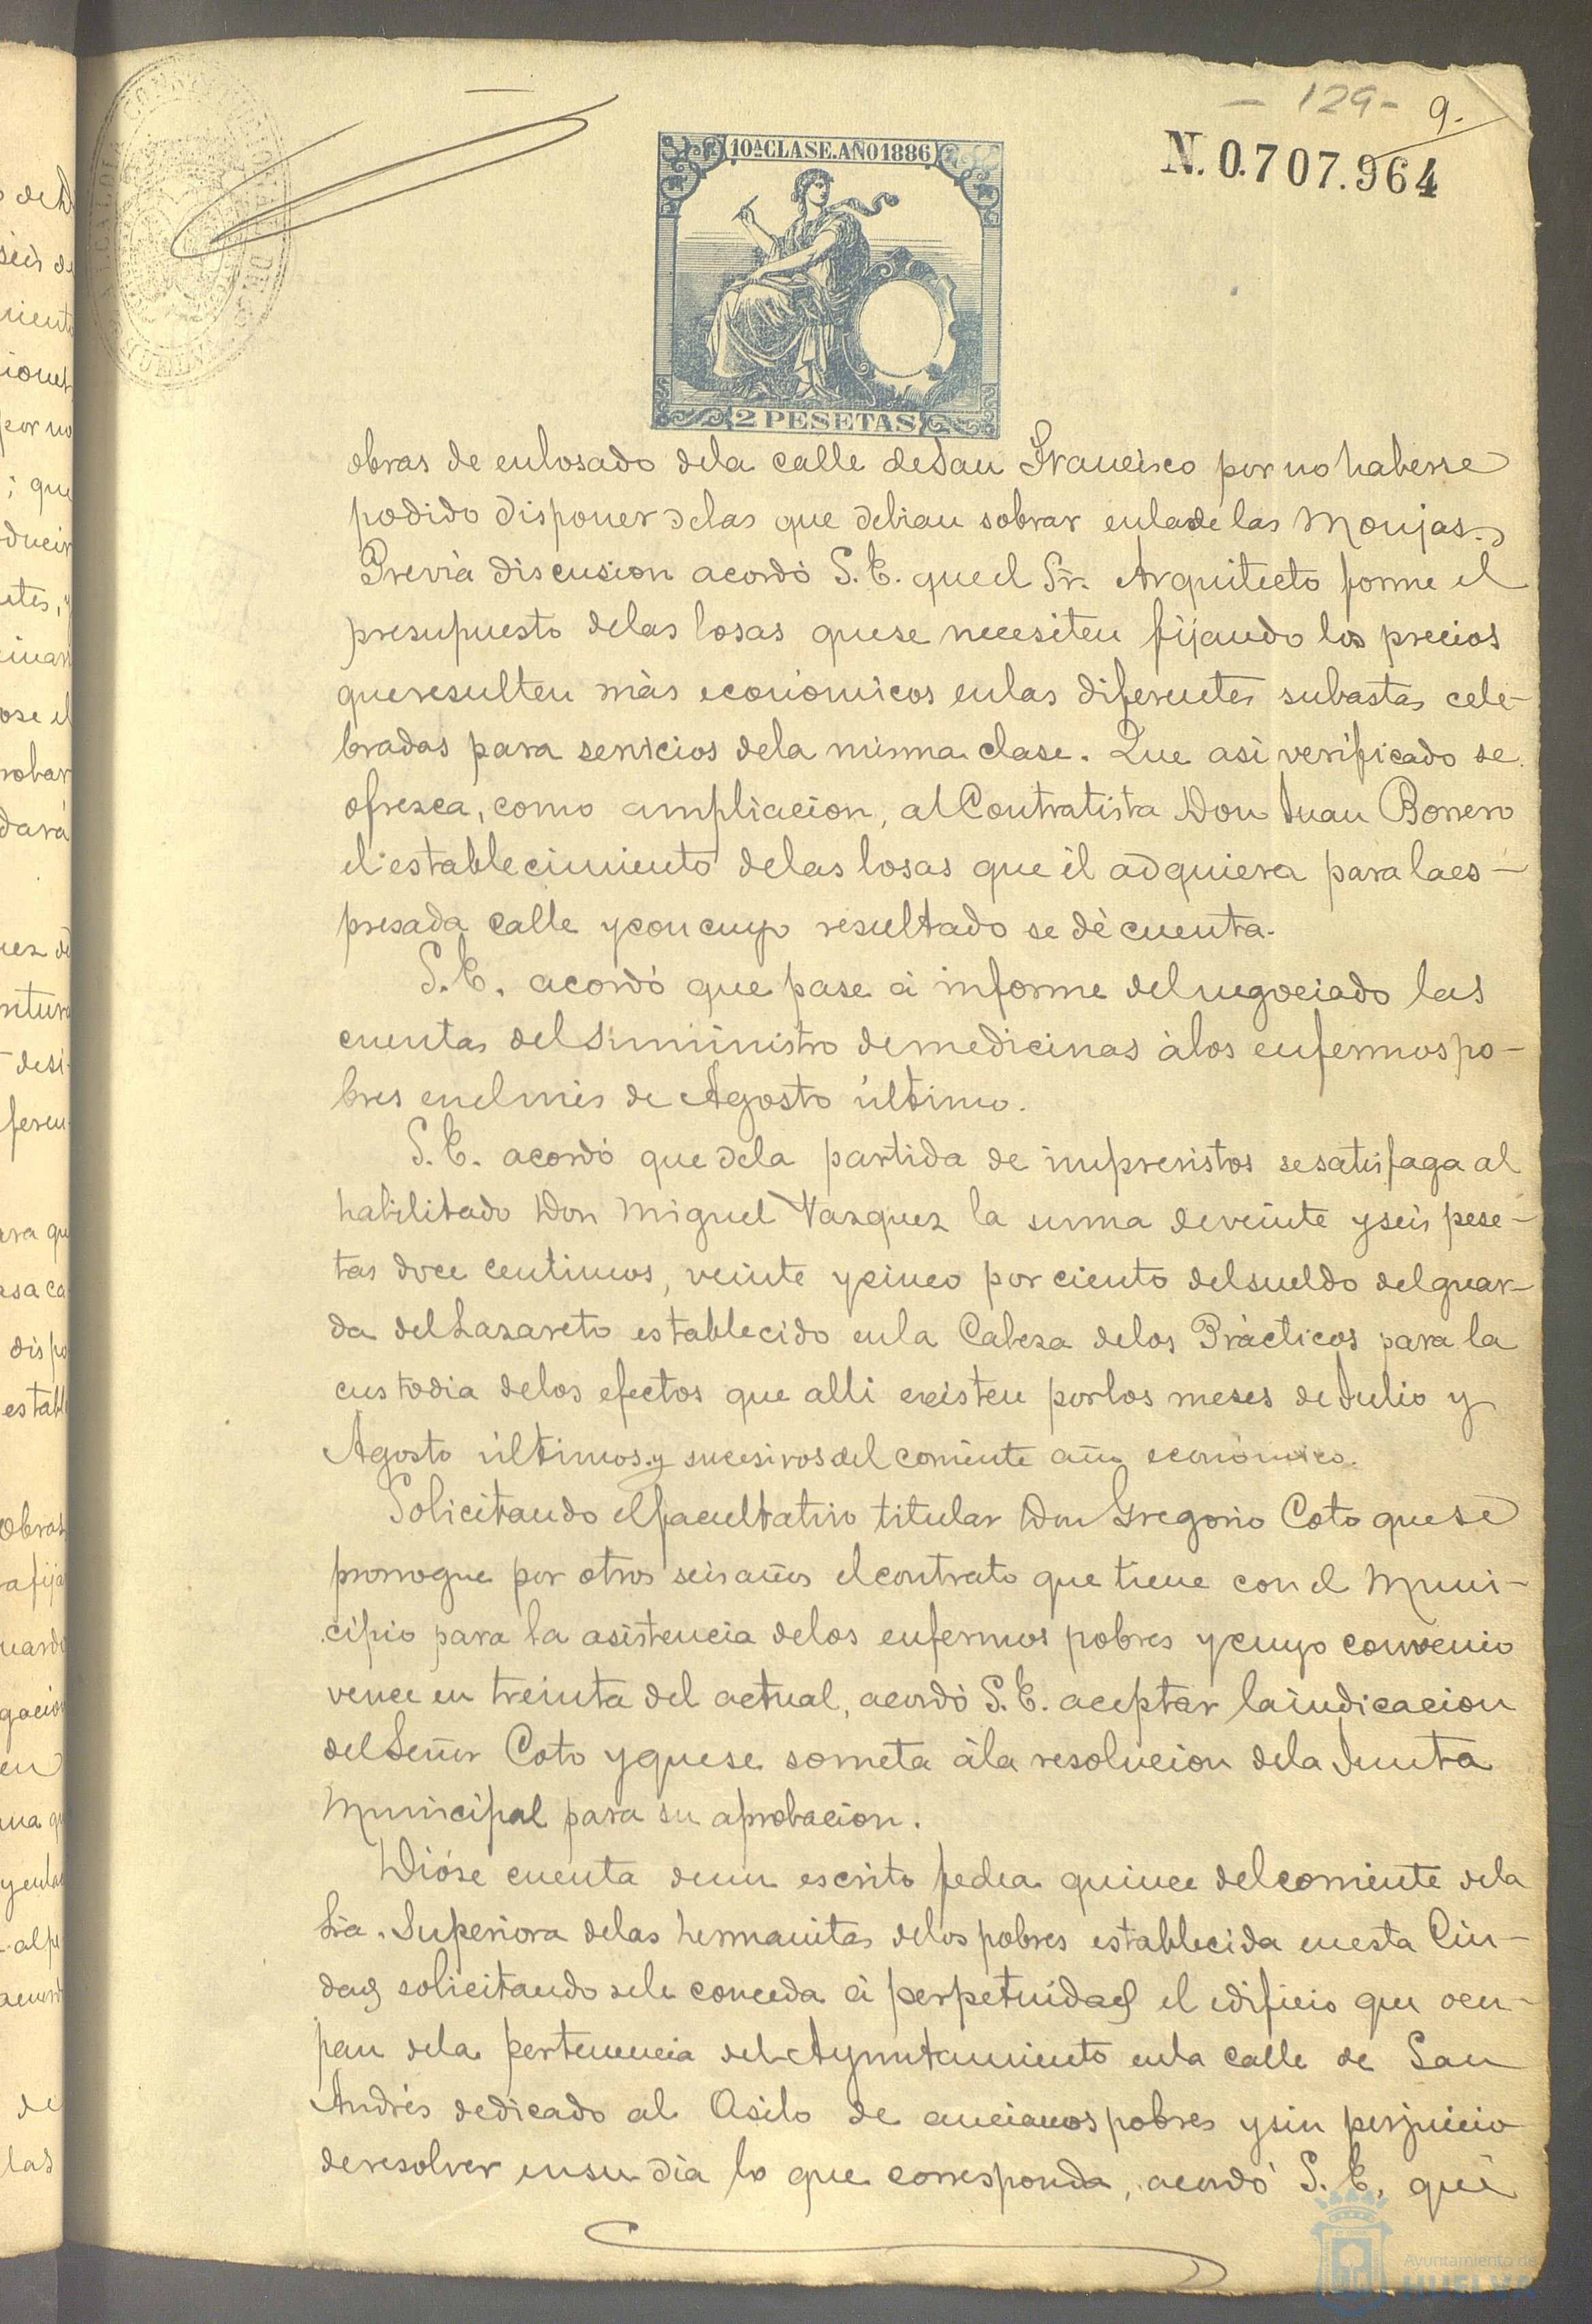 - 129 - 9.
N. 0.707.964
10ª CLASE. AÑO 1886
2 PESETAS
obras de enlosado dela calle de San Francisco por no haberse
podido disponer delas que debian sobrar enlade las Monjas.
Previa discusion acordó S. E. que el Sr. Arquitecto forme el
presupuesto delas losas quese necesiten fijando los precios
queresulten más económicos enlas diferentes subastas cele-
bradas para servicios dela misma clase. Que asi verificado se
ofrezca, como ampliacion, al Contratista Don Juan Borrero
el establecimiento delas losas que él adquiera para la es-
presada calle y con cuyo resultado se dé cuenta.
S. E. acordó que pase á informe del negociado las
cuentas del suministro de medicinas á los enfermos po-
bres enel mes de Agosto último.
S. E. acordó que dela partida de imprevistos se satisfaga al
habilitado Don Miguel Vazquez la suma de veinte y seis pese-
tas doce centimos, veinte y cinco por ciento del sueldo del guar-
da del Lazareto establecido enla Cabeza delos Prácticos para la
custodia delos efectos que alli existen por los meses de Julio y
Agosto últimos y sucesivos del corriente año económico.
Solicitando el facultativo titular Don Gregorio Coto quese
prorrogue por otros seis años el contrato que tiene con el Muni-
cipio para la asistencia delos enfermos pobres y cuyo convenio
vence en treinta del actual, acordó S. E. aceptar la indicacion
del Señor Coto y quese someta á la resolucion dela Junta
Municipal para su aprobacion.
Dióse cuenta deun escrito fecha quince del corriente dela
Sra. Superiora delas hermanitas delos pobres establecida enesta Ciu-
dad solicitando sele conceda á perpetuidad el edificio que ocu-
pan dela pertenencia del Ayuntamiento enla calle de San
Andrés dedicado al Asilo de ancianos pobres y sin perjuicio
de resolver ensu dia lo que corresponda, acordó S. E. que
Ayuntamiento de
HUELVA